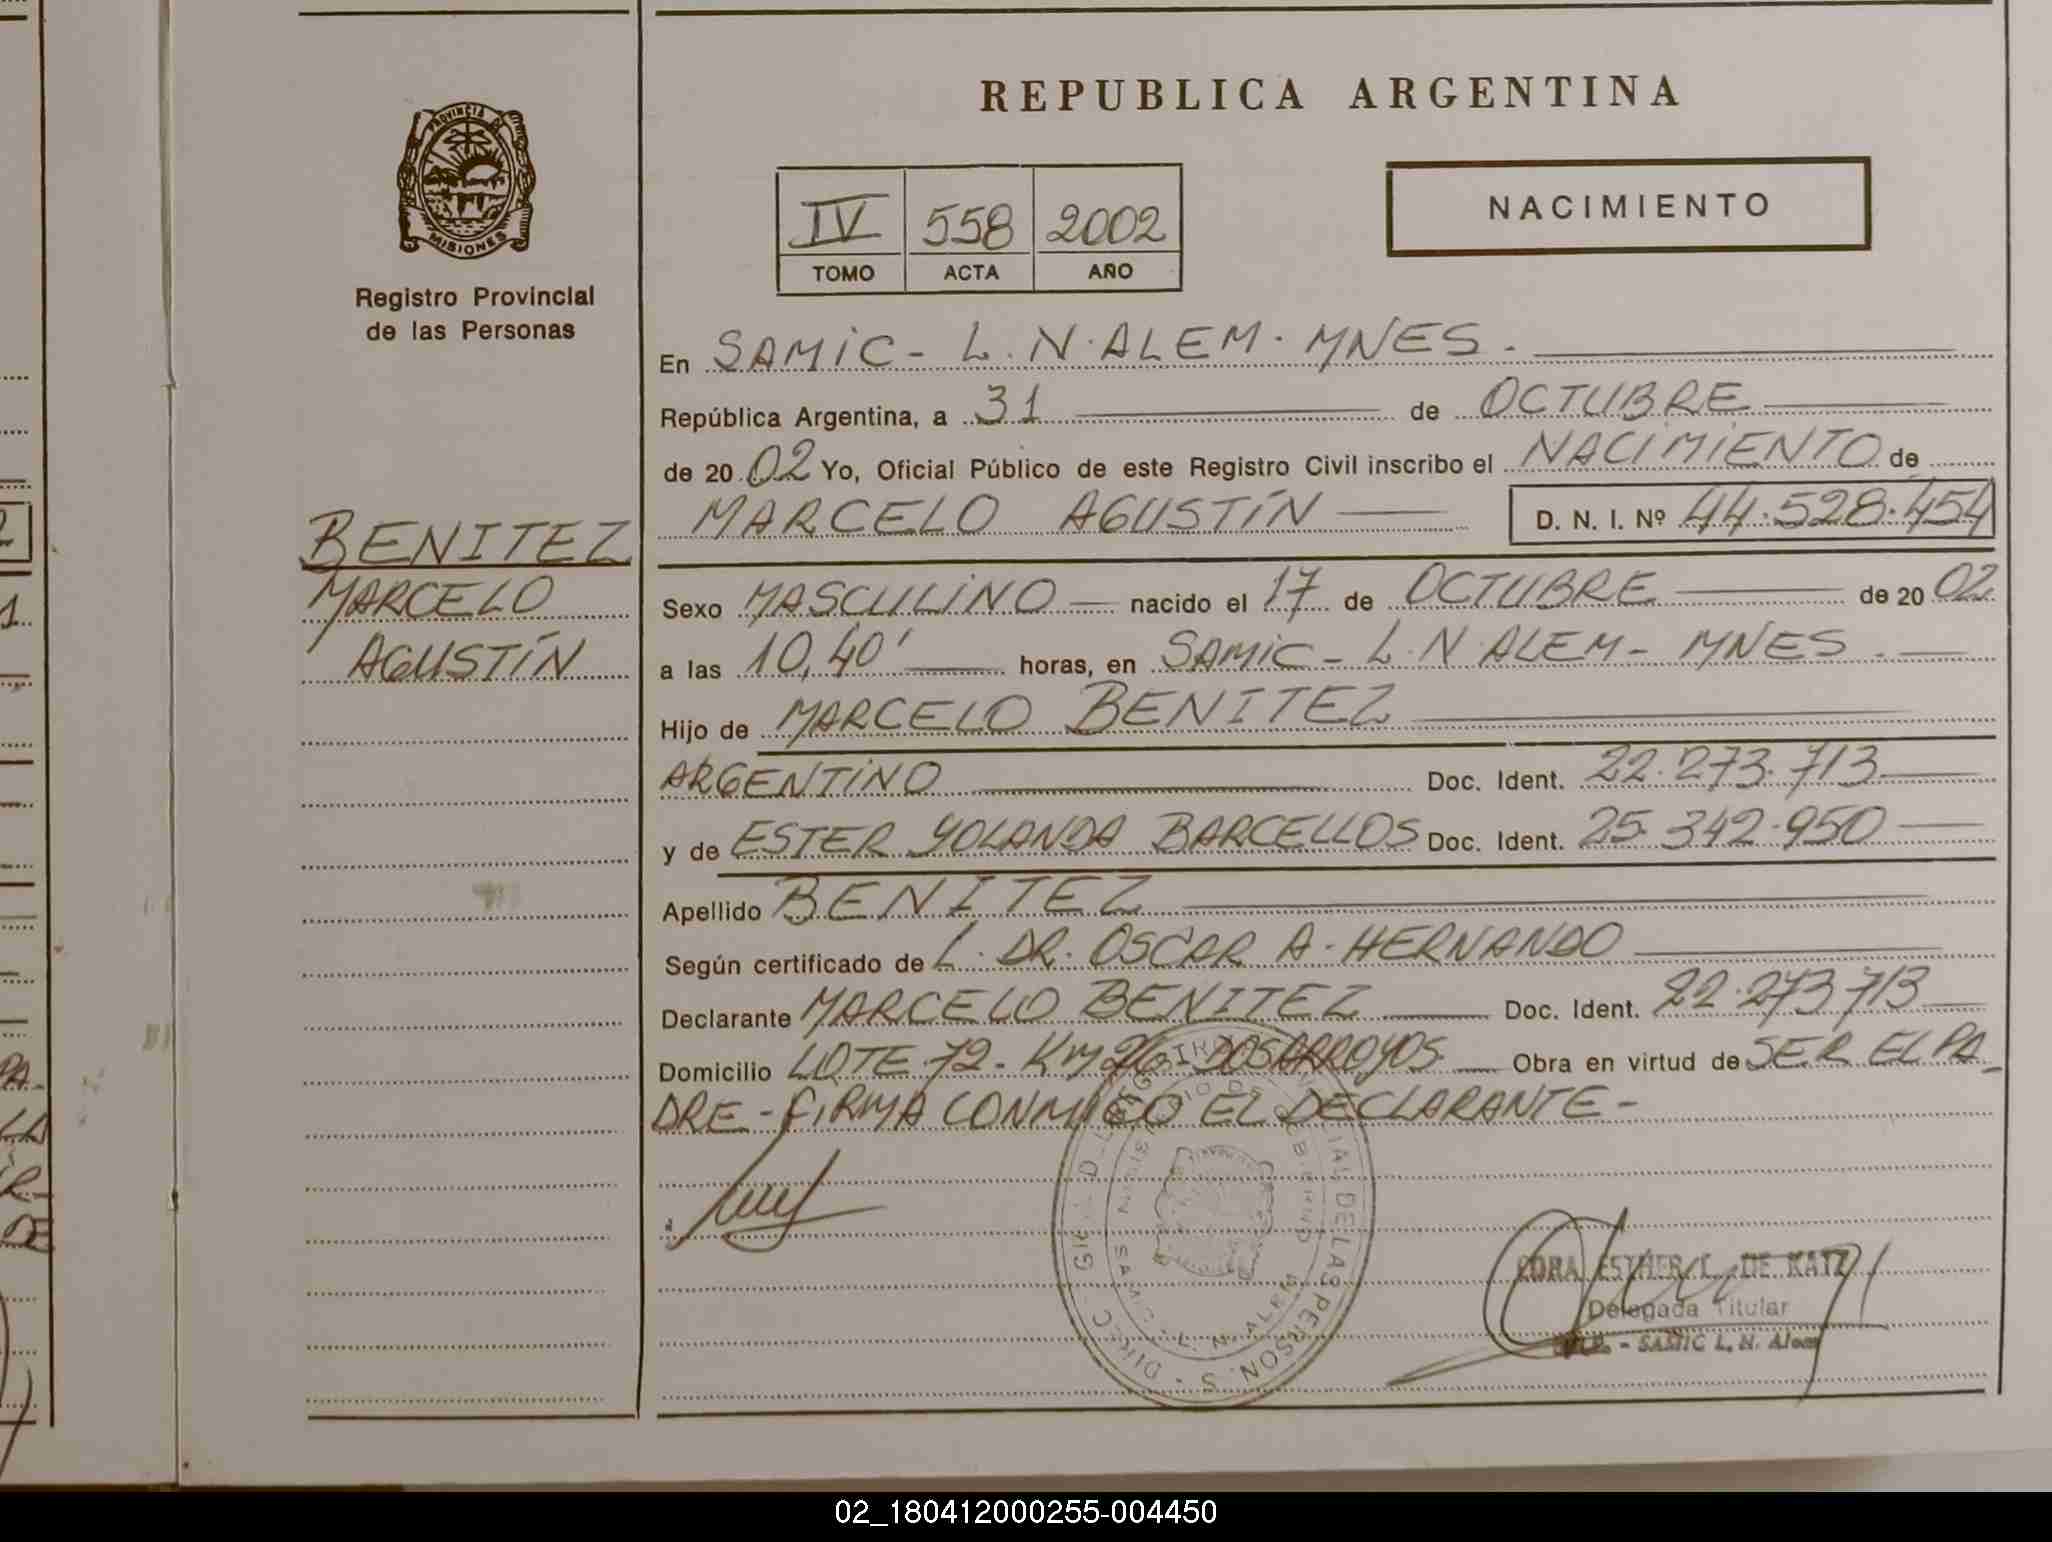 PROVINCIA DE
MISIONES
Registro Provincial
de las Personas
BENITEZ
MARCELO
AGUSTÍN
REPUBLICA ARGENTINA
IV 558 2002
TOMO ACTA AÑO
NACIMIENTO
En SAMIC - L.N. ALEM. MNES.
República Argentina, a 31 de OCTUBRE
de 2002 Yo, Oficial Público de este Registro Civil inscribo el NACIMIENTO de
MARCELO AGUSTÍN D. N. I. Nº 44.528.454
Sexo MASCULINO nacido el 17 de OCTUBRE de 2002
a las 10,40' horas, en SAMIC - L.N. ALEM - MNES.
Hijo de MARCELO BENITEZ
ARGENTINO Doc. Ident. 22.273.713
y de ESTER YOLANDA BARCELLOS Doc. Ident. 25.342.950
Apellido BENITEZ
Según certificado de L. DR. OSCAR A. HERNANDO
Declarante MARCELO BENITEZ Doc. Ident. 22.273713
Domicilio LOTE 72 - KM 26 - DOS ARROYOS Obra en virtud de SER EL PA
DRE - FIRMA CONMIGO EL DECLARANTE -
DE LAS PERSON. S
SAMIC - L. N. ALEM
ESTHER L. DE KATZ
Delegada Titular
- SAMIC L. N. Alem
02_180412000255-004450